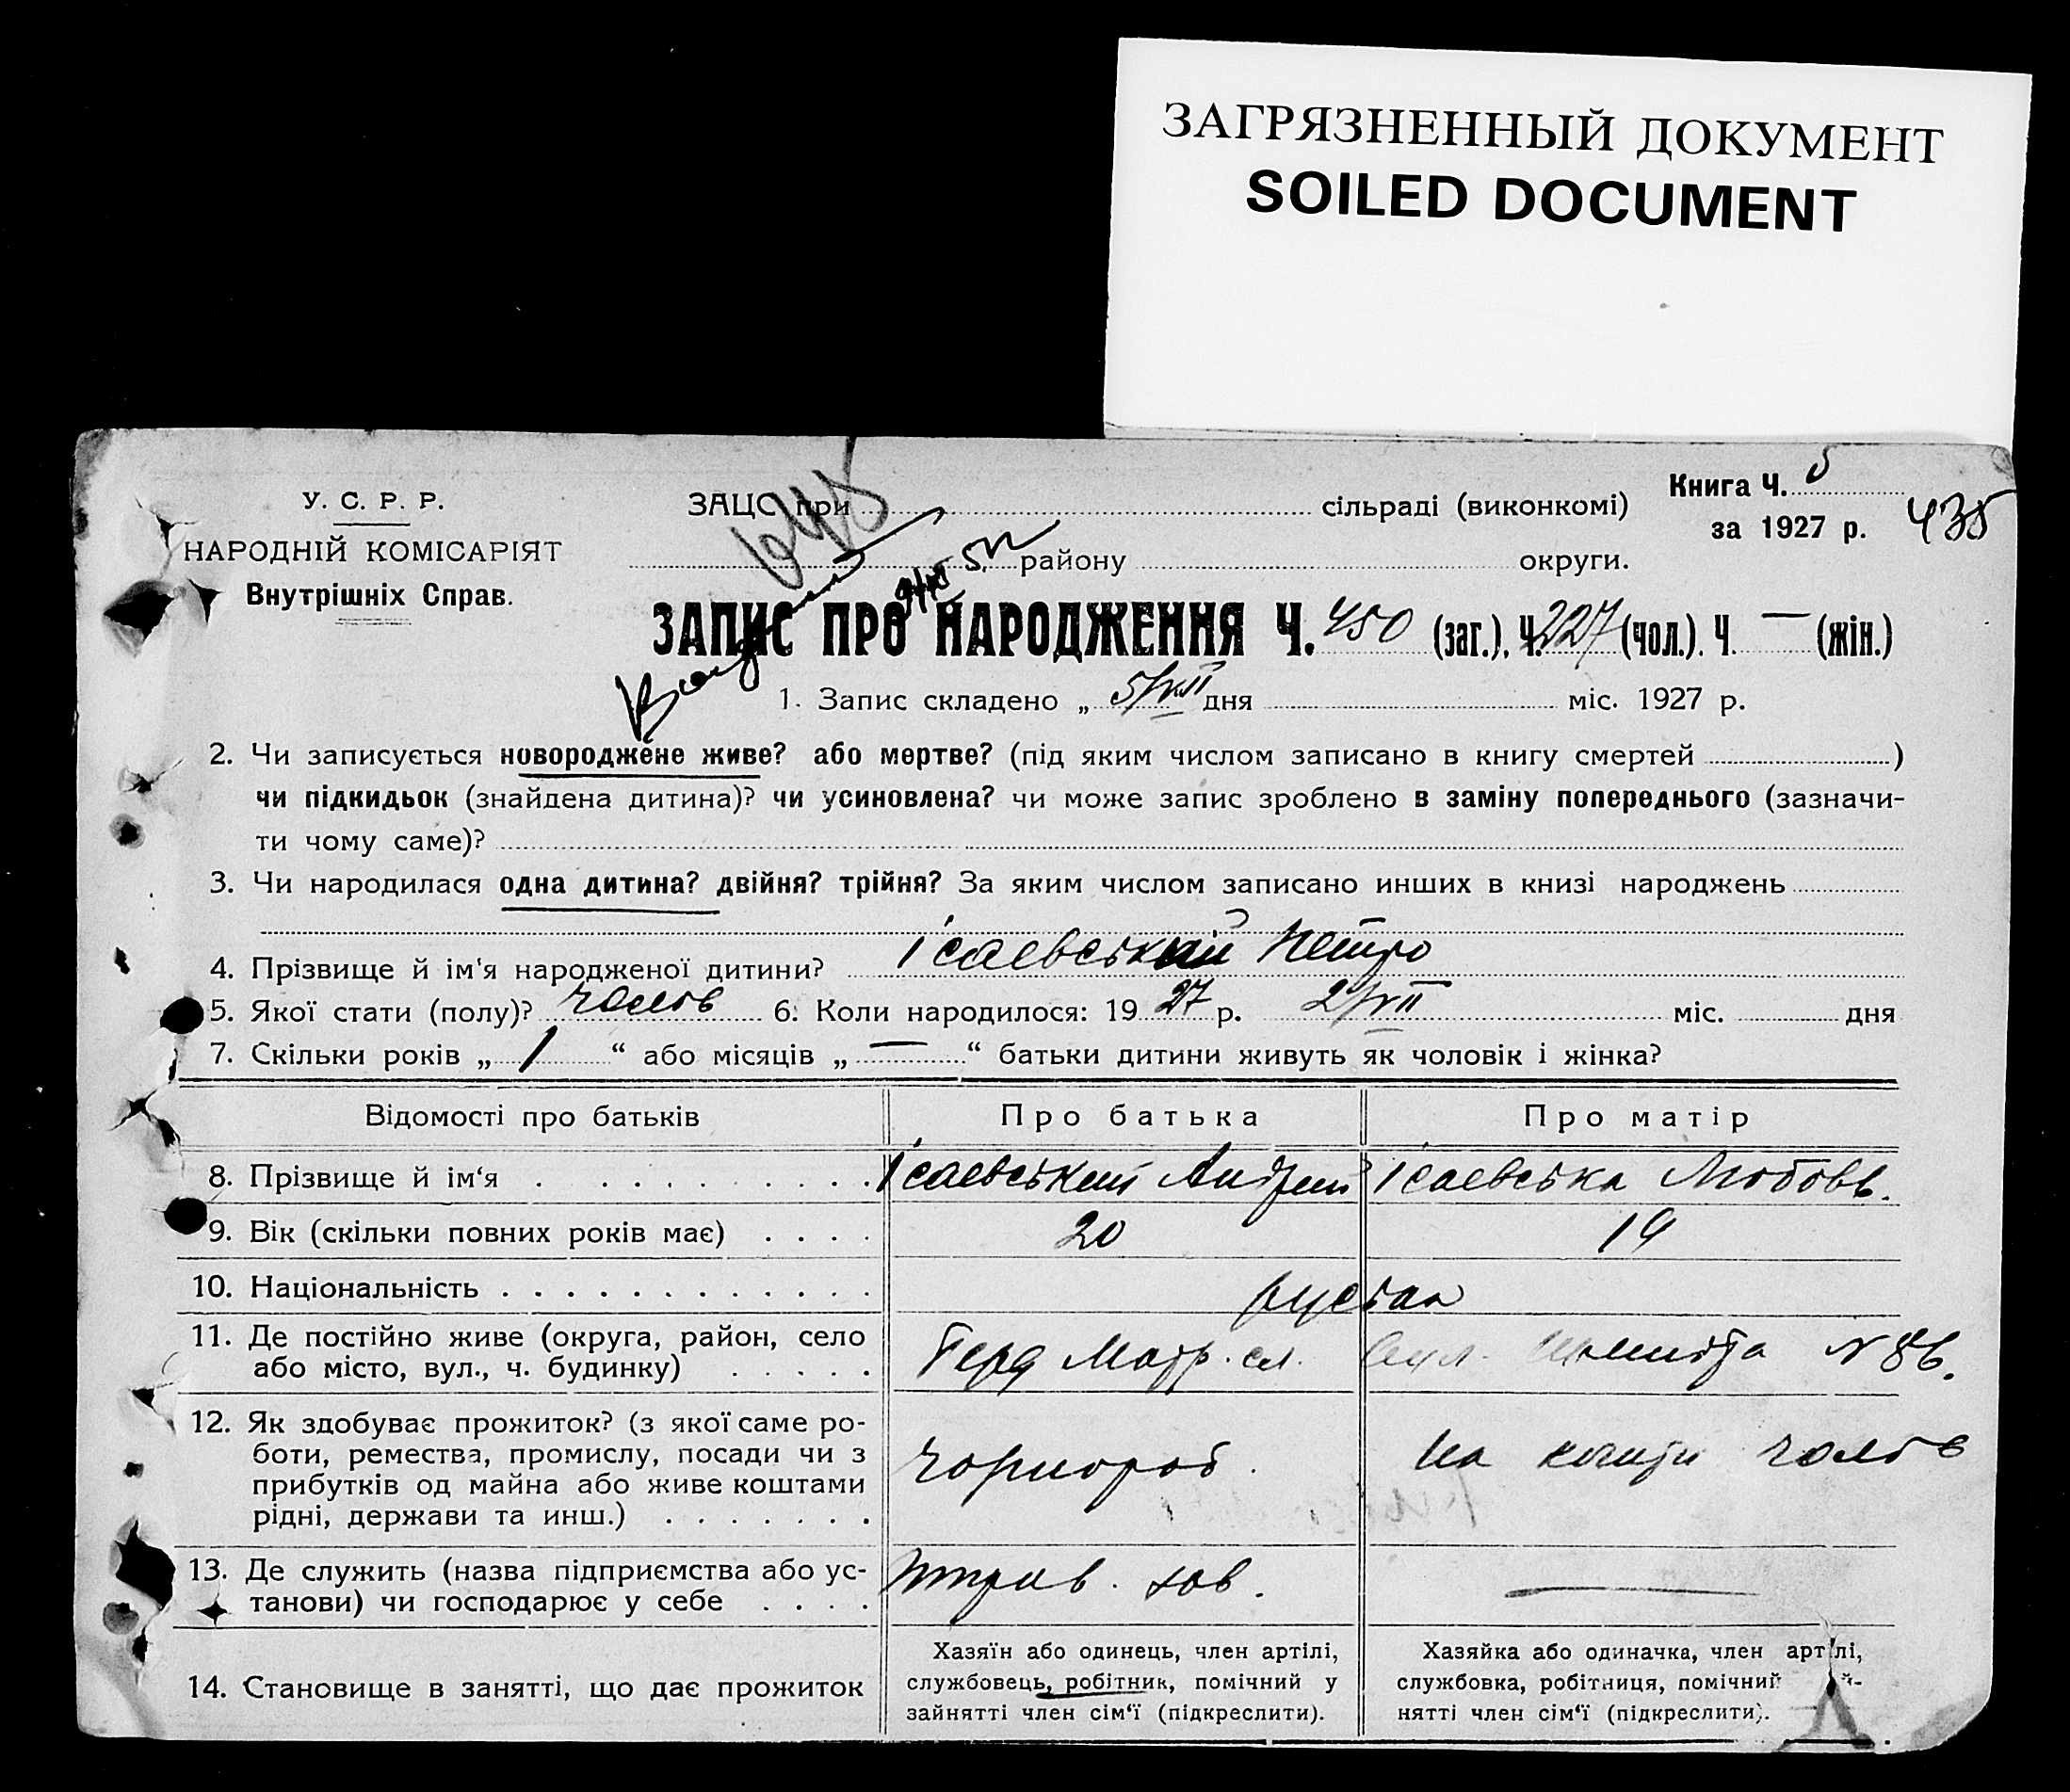 ЗАГРЯЗНЕННЫЙ ДОКУМЕНТ
SOILED DOCUMENT
У. С. Р. Р.
НАРОДНІЙ КОМІСАРІЯТ
Внутрішніх Справ.
ЗАЦС при сільраді (виконкомі)
району округи.
Книга Ч. 5
за 1927 р. 435
ЗАПИС ПРО НАРОДЖЕННЯ Ч. 450 (заг.), Ч. 227 (чол.). Ч. — (жін.)
1. Запис складено „ 5/VII дня міс. 1927 р.
2. Чи записується новороджене живе? або мертве? (під яким числом записано в книгу смертей )
чи підкидьок (знайдена дитина)? чи усиновлена? чи може запис зроблено в заміну попереднього (зазначи-
ти чому саме)?
3. Чи народилася одна дитина? двійня? трійня? За яким числом записано инших в книзі народжень
4. Прізвище й ім'я народженої дитини? Ісаевський Петро
5. Якої стати (полу)? чолов 6. Коли народилося: 19 27 р. 2/VII міс. дня
7. Скільки років „ 1 “ або місяців „ — “ батьки дитини живуть як чоловік і жінка?
Відомості про батьків Про батька Про матір
8. Прізвище й ім‘я Ісаевський Андрий Ісаевська Любовь.
9. Вік (скільки повних років має) 20 19
10. Національність руська
11. Де постійно живе (округа, район, село
або місто, вул., ч. будинку) сл. вул. N 86.
12. Як здобуває прожиток? (з якої саме ро-
боти, ремества, промислу, посади чи з
прибутків од майна або живе коштами
рідні, держави та инш.) чорнороб. на кошти чолов
13. Де служить (назва підприємства або ус-
танови) чи господарює у себе —
14. Становище в занятті, що дає прожиток
Хазяїн або одинець, член артілі,
службовець, робітник, помічний у
зайнятті член сім‘ї (підкреслити).
Хазяйка або одиначка, член артілі,
службовка, робітниця, помічний й-
нятті член сім‘ї (підкреслити).